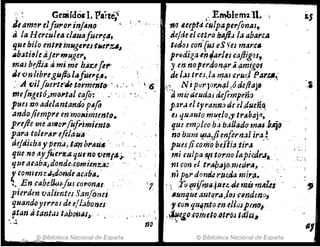 Gemidos I. Parte,
de amor el furor insano
à la Herculea claua fuerça,
que bilo entre mugeres tuerza,
abatiole à ser muger,
mas bestia à mi me haze ser
de vn libre gusto la fuerça.
A vil fuerte de tormento
me sugetò, mortal caso:
pues no adelantando passo
ando siempre en mouimiento.
preste me amor sufrimiento
para tolerar esclaua
desdicha y pena, tan braua
que no ay fuerza que no venza,
que acaba, donde comiença:
y comiença, donde acaba.
En cabellos sus coronas
pierden valientes Sansones
quando yerros de eslabones
atan à tantas tahonas,
no
Emblema II.
15
no acepta culpa personas,
desde el cetro hasta la abarca
todos con sus eSses marca
prodiga en darles castigos,
y en no perdonar à amigos
de las tres, la mas cruel Parca,
Ni por yo Real, ò desllajo
à mi caudas desempeño
para el tyranno de el dueño,
es quanto muelo, y trabajo,
que empleo ha ballado mas bajo
no bum ana, si enfernal ira?
pues si como bestia tira
mi culpa en torno la piedra,
ni con el trabajo medra,
ni por donde rueda mira.
aunque autora, los condeno,
y con quanto en ellas peno,
luego cometo otros tales,
© Biblioteca Nacional de España
© Biblioteca Nacional de España